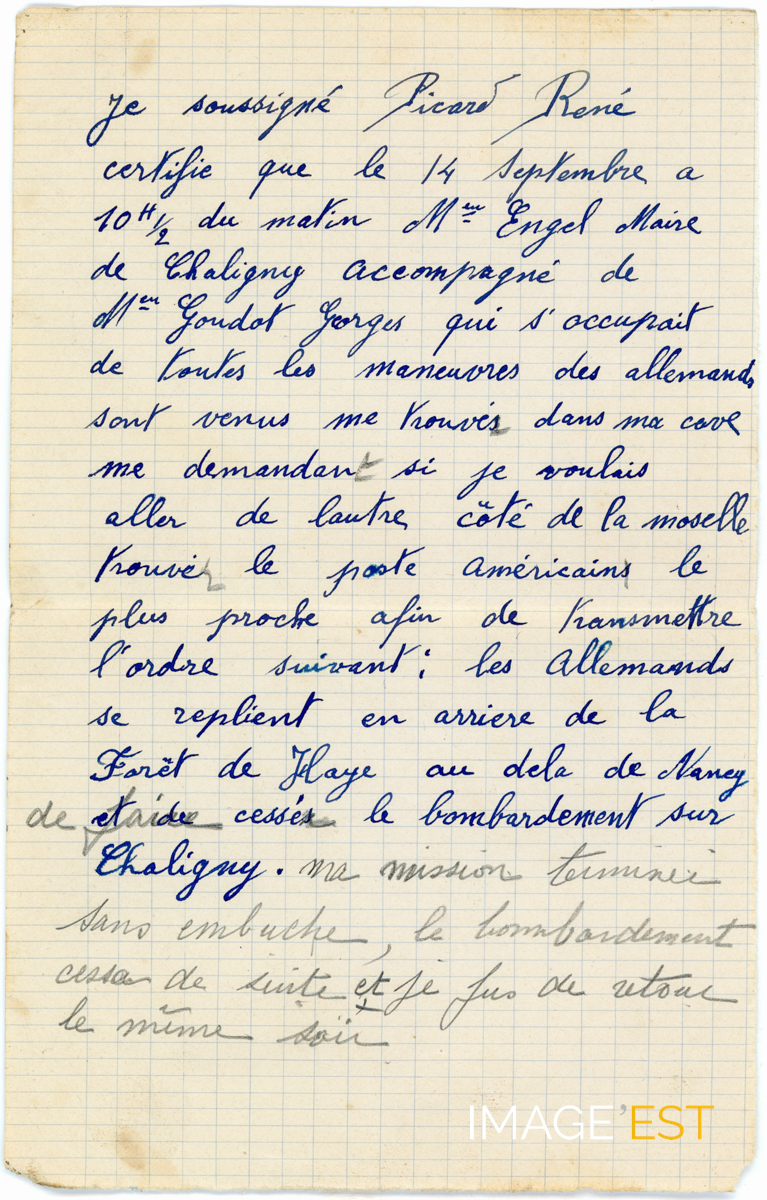 Je soussigné Picard René
certifie que le 14 Septembre a
10H1/2 du matin Meur Engel Maire
de Chaligny accompagné de
Meur Goudot Gorges qui s'occupait
de toutes les maneuvres des allemands
sont venus me trouvér dans ma cave
me demandant si je voulais
aller de lautre côté de la moselle
trouvér le poste américains le
plus proche afin de transmettre
l'ordre suivant : les Allemands
se replient en arriere de la
Forêt de Haye au dela de Nancy
de faire et de cessér le bombardement sur
Chaligny. ma mission terminée
sans embuche, le bombardement
cessa de suite et je fus de retour
le même soir
IMAGE'EST